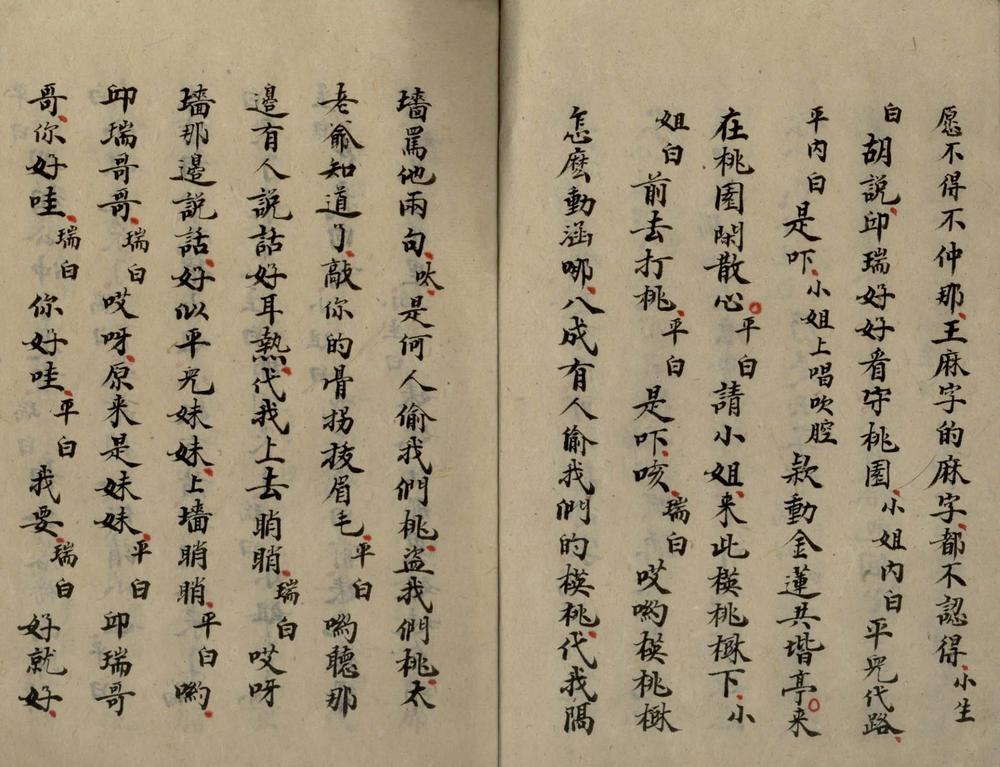 愿不得不仲那王麻字的麻字都不認得小生
白胡説邱瑞好好看守桃園小姐内白平兒代路
平内白是吓小姐上唱吹腔欵動金蓮共堦亭来
在桃園閑散心平白請小姐来此桜桃樹下小
姐白前去打桃平白是吓咳瑞白哎喲桜桃樹
怎麽動涵哪八成有人偷我們的桜桃代我隔
墻罵他兩句呔是何人偷我們桃盗我們桃太
老爺知道了敲你的骨拐拔眉毛平白喲聽那
邉有人説話好耳熱代我上去睄睄瑞白哎呀
墻那邉説話好似平兒妹妹上墻睄睄平白喲
邱瑞哥哥瑞白哎呀原来是妹妹平白邱瑞哥
哥你好哇瑞白你好哇平白我要瑞白好就好